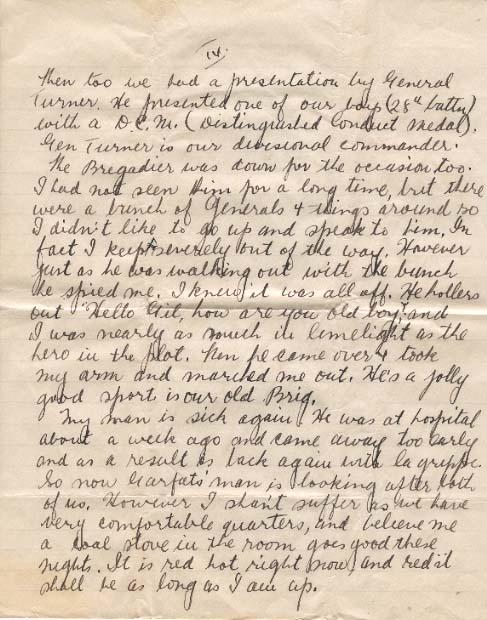 14.
Then too we had a presentation by General
Turner. He presented one of our boys (28th batty)
with a D.C.M. (Distinguished Conduct Medal).
Gen Turner is our divisional commander.
The Bregadier was down for the occasion too.
I had not seen him for a long time, but there
were a bunch of Generals & things around so
I didn't like to go up and speak to him. In
fact I keept severely out of the way. However
just as he was walking out with the bunch
he spied me. I knew it was all off. He hollers
out "Hello Git, how are you old boy" and
I was nearly as much in limelight as the
hero in the plot. Then he came over & took
my arm and marched me out. He's a jolly
good sport is our old Brig.
My man is sick again. He was at hospital
about a week ago and came away too early
and as a result is back again with la grippe.
So now man is looking after both
of us. However I shan't suffer as we have
very comfortable quarters, and believe me
a coal stove in the room goes good these
nights. It is red hot right now, and red it
shall be as long as I am up.